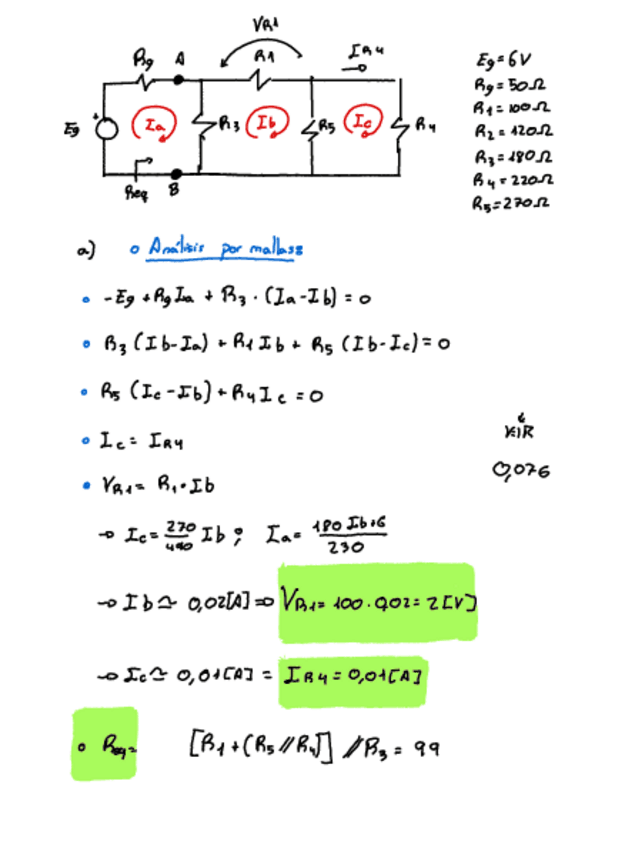 VR1
Rg A R1 IR4
Eg Ia R3 Ib R5 Ic R4
Req B
Eg = 6V
Rg = 50Ω
R1 = 100Ω
R2 = 120Ω
R3 = 180Ω
R4 = 220Ω
R5 = 270Ω
a) o Análisis por mallass
• -Eg + Rg Ia + R3 · (Ia - Ib) = 0
• R3 (Ib - Ia) + R1 Ib + R5 (Ib - Ic) = 0
• R5 (Ic - Ib) + R4 Ic = 0
• Ic = IR4
0,076
• VR1 = R1 · Ib
→ Ic = 270/490 Ib ; Ia = 180 Ib + 6 / 230
→ Ib ≃ 0,02 [A] ⇒ VR1 = 100 · 0,02 = 2 [V]
→ Ic ≃ 0,01 [A] = IR4 = 0,01 [A]
o Req = [R1 + (R5 // R4)] // R3 = 99